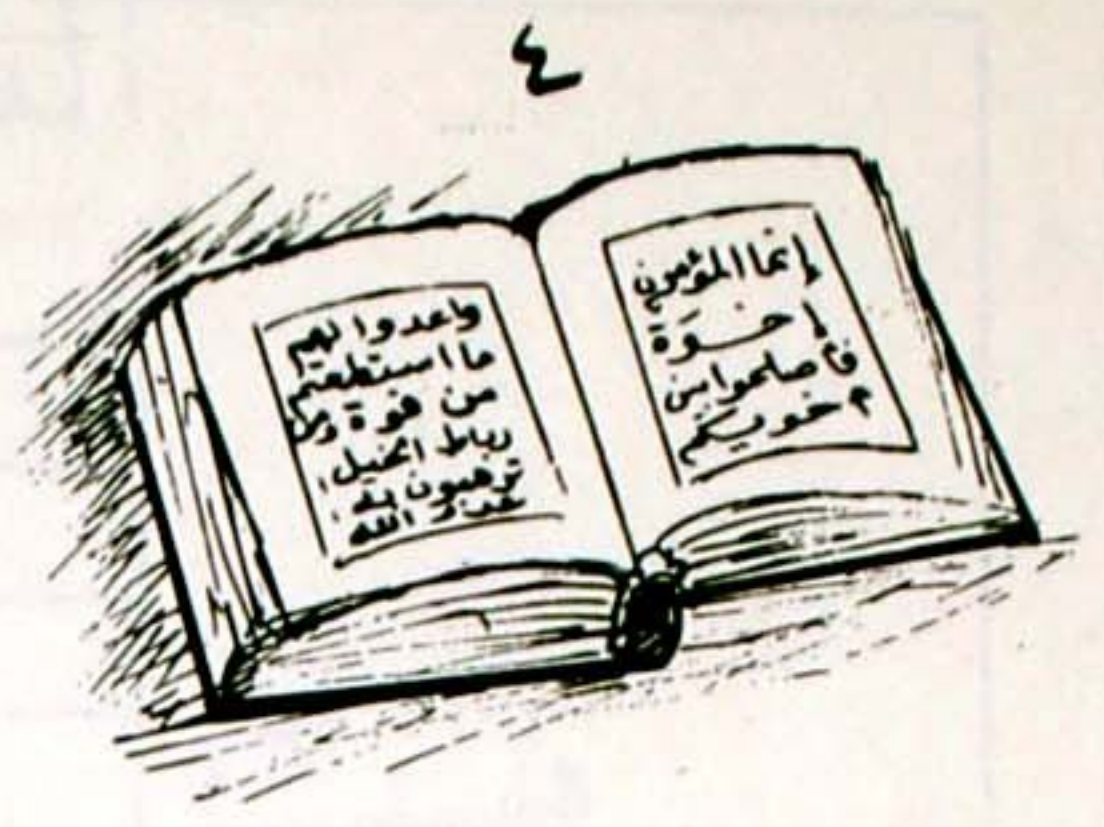 ٤
إنما المؤمنون
إخوة
فأصلحوا بين
أخويكم
واعدوا لهم
ما استطعتم
من قوة ومن
رباط الخيل
ترهبون به
عدو الله